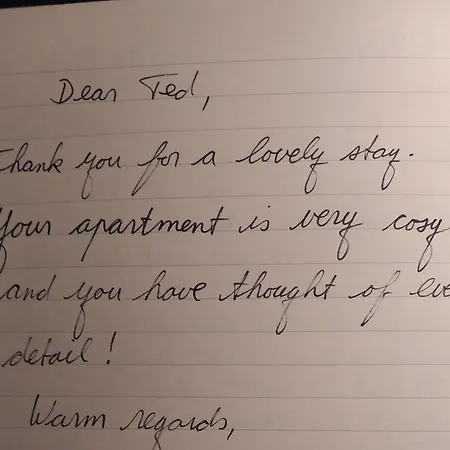 Dear Ted,
Thank you for a lovely stay.
Your apartment is very cosy
and you have thought of eve
detail!
Warm regards,